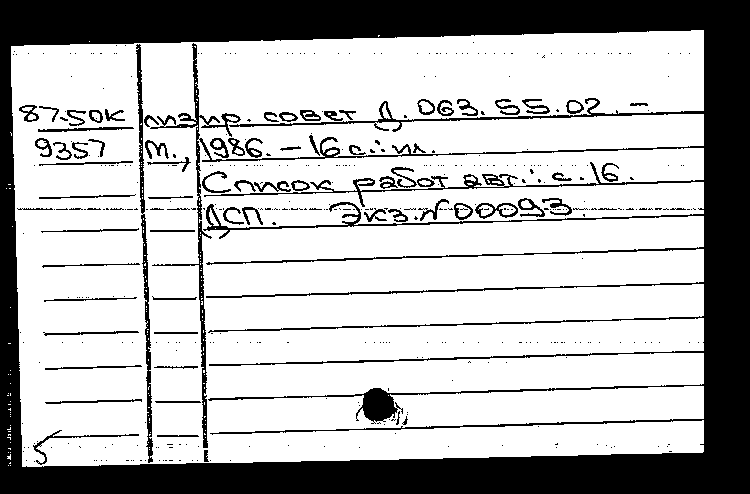 87.50к лизир. совет Д. 063.55.02. –
9357 М., 1986. – 16 с.: ил.
Список работ авт.: с. 16.
ДСП. Экз. № 00093.
5